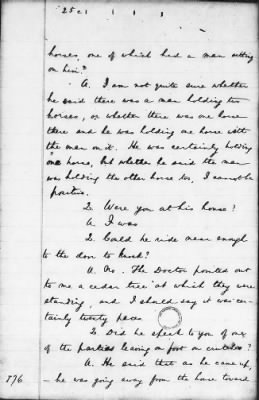 25 c 1
horses, one of which had a man sitting
on him?
A. I am not quite sure whether
he said there was a man holding two
horses, or whether there was one horse
there and he was holding one horse with
the man on it. He was certainly holding
one horse, but whether he said the man
was holding the other horse too, I cannot be
positive.
Q. Were you at his house?
A. I was.
Q. Could he ride near enough
to the door to knock?
A. No. The Doctor pointed out
to me a cedar tree at which they were
standing, and I should say it was cer-
tainly twenty paces.
Q. Did he speak to you of one
of the parties leaving on foot on crutches?
A. He said that as he came up,
– he was going away from the house toward
176